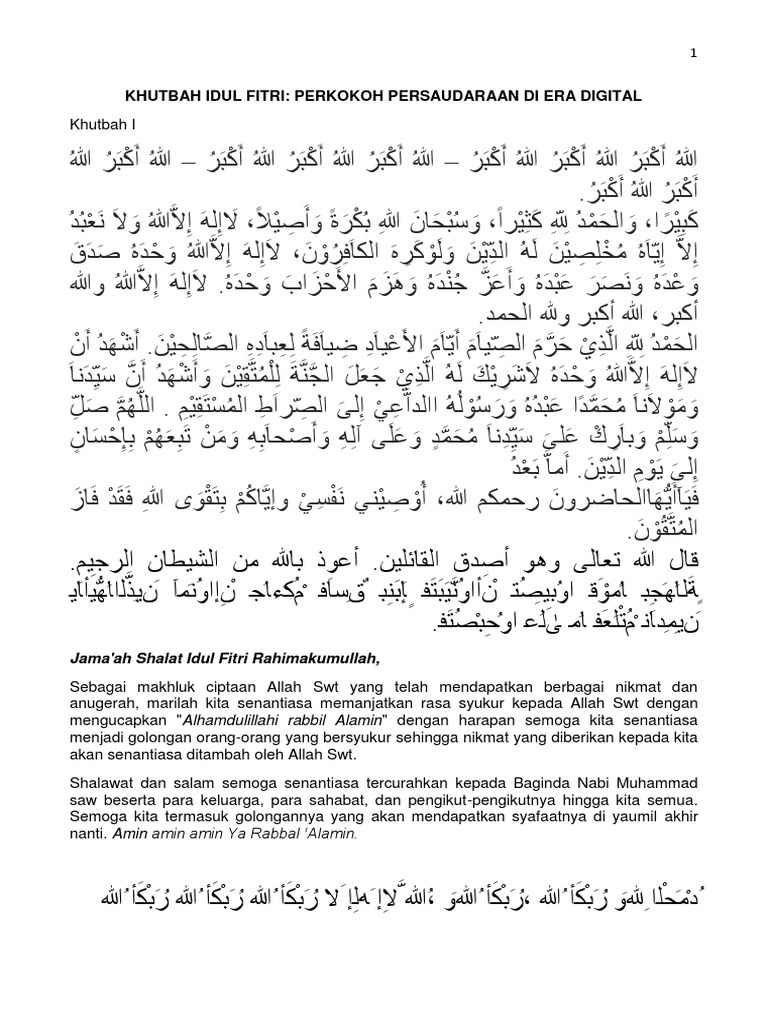 1
KHUTBAH IDUL FITRI: PERKOKOH PERSAUDARAAN DI ERA DIGITAL
Khutbah I
اللهُ أَكْبَرُ اللهُ أَكْبَرُ اللهُ أَكْبَرُ – اللهُ أَكْبَرُ اللهُ أَكْبَرُ اللهُ أَكْبَرُ – اللهُ أَكْبَرُ اللهُ
أَكْبَرُ اللهُ أَكْبَرُ.
كَبِيْرًا، وَالحَمْدُ لِلّهِ كَثِيْراً، وَسُبْحَانَ اللهِ بُكْرَةً وَأَصِيْلاً، لَاإِلهَ إِلاَّاللهُ وَلاَ نَعْبُدُ
إِلاَّ إِيّاَهُ مُخْلِصِيْنَ لَهُ الدِّيْنَ وَلَوْكَرِهَ الكاَفِرُوْنَ، لَاإِلهَ إِلاَّاللهُ وَحْدَهُ صَدَقَ
وَعْدَهُ وَنَصَرَ عَبْدَهُ وَأَعَزَّ جُنْدَهُ وَهَزَمَ الأَحْزَابَ وَحْدَهُ. لاَإِلهَ إِلاَّاللهُ والله
أكبر، الله أكبر ولله الحمد.
الحَمْدُ لِلّهِ الَّذِيْ حَرَّمَ الصِّياَمَ أَيّاَمَ الأَعْيادِ ضِيَافَةً لِعِبادِهِ الصَّالِحِيْنَ. أَشْهَدُ أَنْ
لاَإِلهَ إِلاَّاللهُ وَحْدَهُ لاَشَرِيْكَ لَهُ الَّذِيْ جَعَلَ الجَّنَّةَ لِلْمُتَّقِيْنَ وَأَشْهَدُ أَنَّ سَيِّدَناَ
وَمَوْلاَناَ مُحَمَّدًا عَبْدُهُ وَرَسُوْلُهُ االدَّاعِيْ إِلىَ الصِّراَطِ المُسْتَقِيْمِ . اللَّهُمَّ صَلِّ
وَسَلِّمْ وَباَرِكْ عَلىَ سَيِّدِناَ مُحَمَّدٍ وَعَلَى آلِهِ وَأَصْحاَبِهِ وَمَنْ تَبِعَهُمْ بِإِحْسَانٍ
إِلىَ يَوْمِ الدِّيْنَ. أَماَّ بَعْدُ
فَيَاأَيُّهَاالحاضرونَ رحمكم الله، أُوْصِيْني نَفْسِيْ وإيَّاكُمْ بِتَقْوَى اللهِ فَقَدْ فَازَ
المُتَّقُوْنَ.
قال الله تعالى وهو أصدق القائلين. أعوذ بالله من الشيطان الرجيم.
Jama'ah Shalat Idul Fitri Rahimakumullah,
Sebagai makhluk ciptaan Allah Swt yang telah mendapatkan berbagai nikmat dan
anugerah, marilah kita senantiasa memanjatkan rasa syukur kepada Allah Swt dengan
mengucapkan "Alhamdulillahi rabbil Alamin" dengan harapan semoga kita senantiasa
menjadi golongan orang-orang yang bersyukur sehingga nikmat yang diberikan kepada kita
akan senantiasa ditambah oleh Allah Swt.
Shalawat dan salam semoga senantiasa tercurahkan kepada Baginda Nabi Muhammad
saw beserta para keluarga, para sahabat, dan pengikut-pengikutnya hingga kita semua.
Semoga kita termasuk golongannya yang akan mendapatkan syafaatnya di yaumil akhir
nanti. Amin amin amin Ya Rabbal 'Alamin.